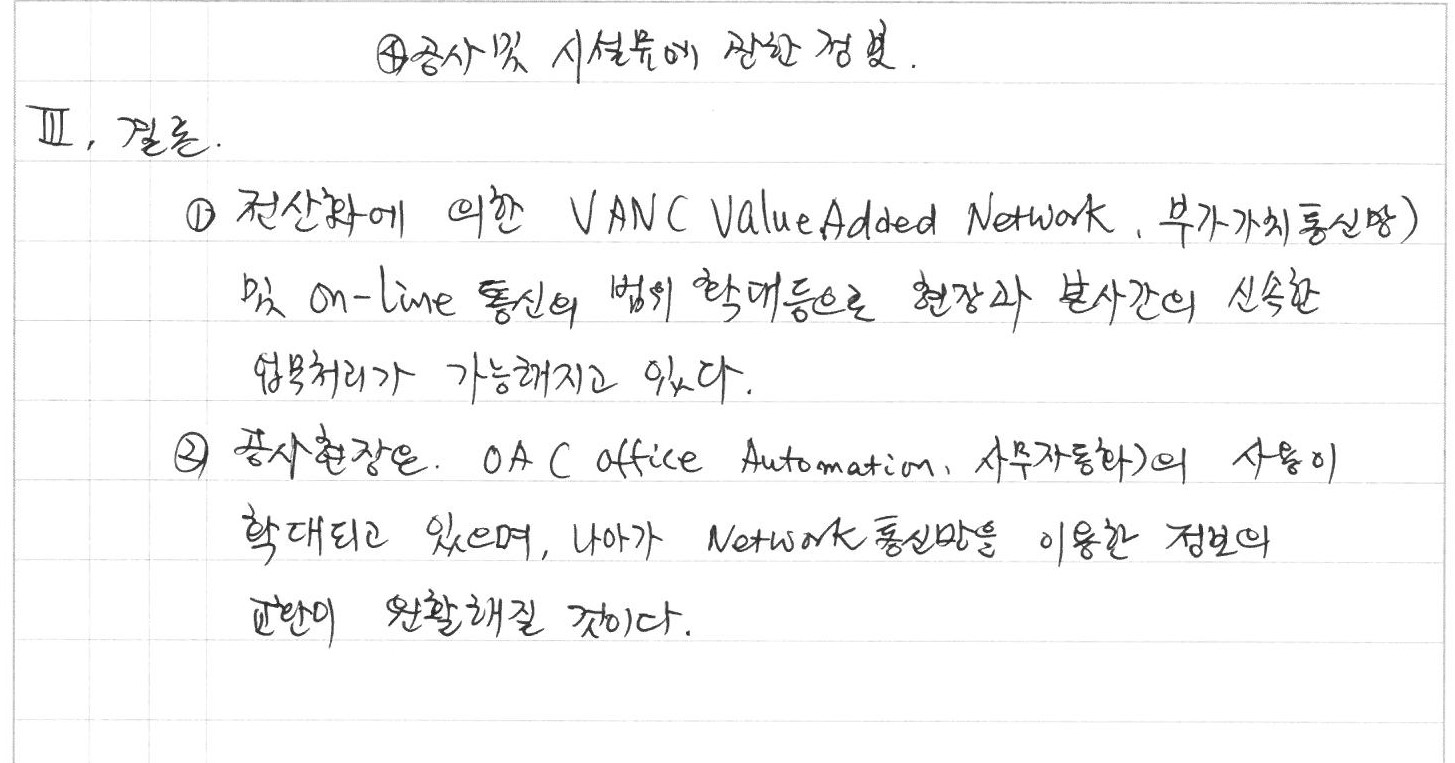 ④공사 및 시설물에 관한 정보.
Ⅲ. 결론.
① 전산화에 의한 VAN( Value Added Network, 부가가치통신망)
및 on-line 통신의 범위 확대등으로 현장과 본사간의 신속한
업무처리가 가능해지고 있다.
② 공사현장은. OA( office Automation, 사무자동화)의 사용이
확대되고 있으며, 나아가 Network 통신망을 이용한 정보의
교환이 원활해질 것이다.